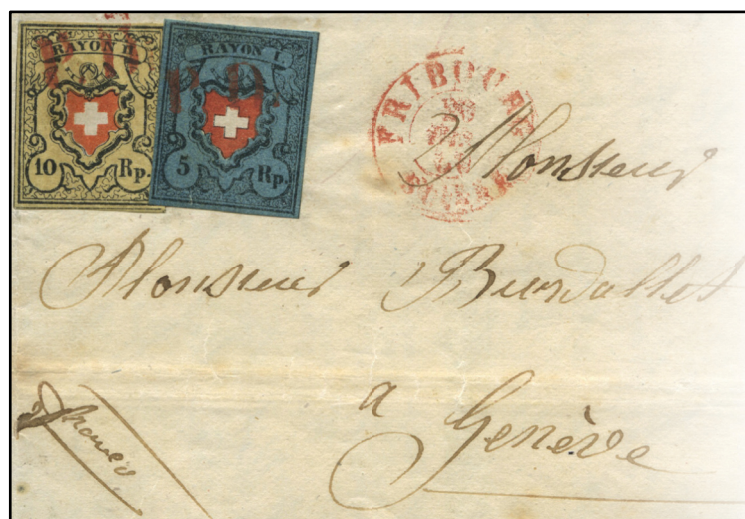 RAYON II.
10 Rp.
RAYON I.
5 Rp.
P. D.
FRIBOURG
SUISSE
Monsieur
Monsieur Burdallet
a
Genève
franco